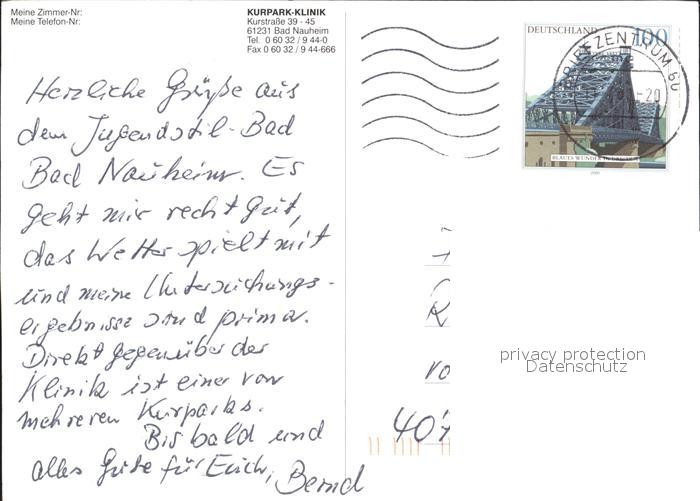 Meine Zimmer-Nr:
Meine Telefon-Nr:
KURPARK-KLINIK
Kurstraße 39 - 45
61231 Bad Nauheim
Tel. 0 60 32 / 9 44-0
Fax 0 60 32 / 9 44-666
DEUTSCHLAND 100
BRIEFZENTRUM 60
-20
BLAUES WUNDER IN DRESDEN
2000
Herzliche Grüße aus
dem Jugendstil-Bad
Bad Nauheim. Es
geht mir recht gut,
das Wetter spielt mit
und meine Untersuchungs-
ergebnisse sind prima.
Direkt gegenüber der
Klinik ist einer von
mehreren Kurparks.
Bis bald und
alles Gute für Euch,
Bernd
privacy protection
Datenschutz